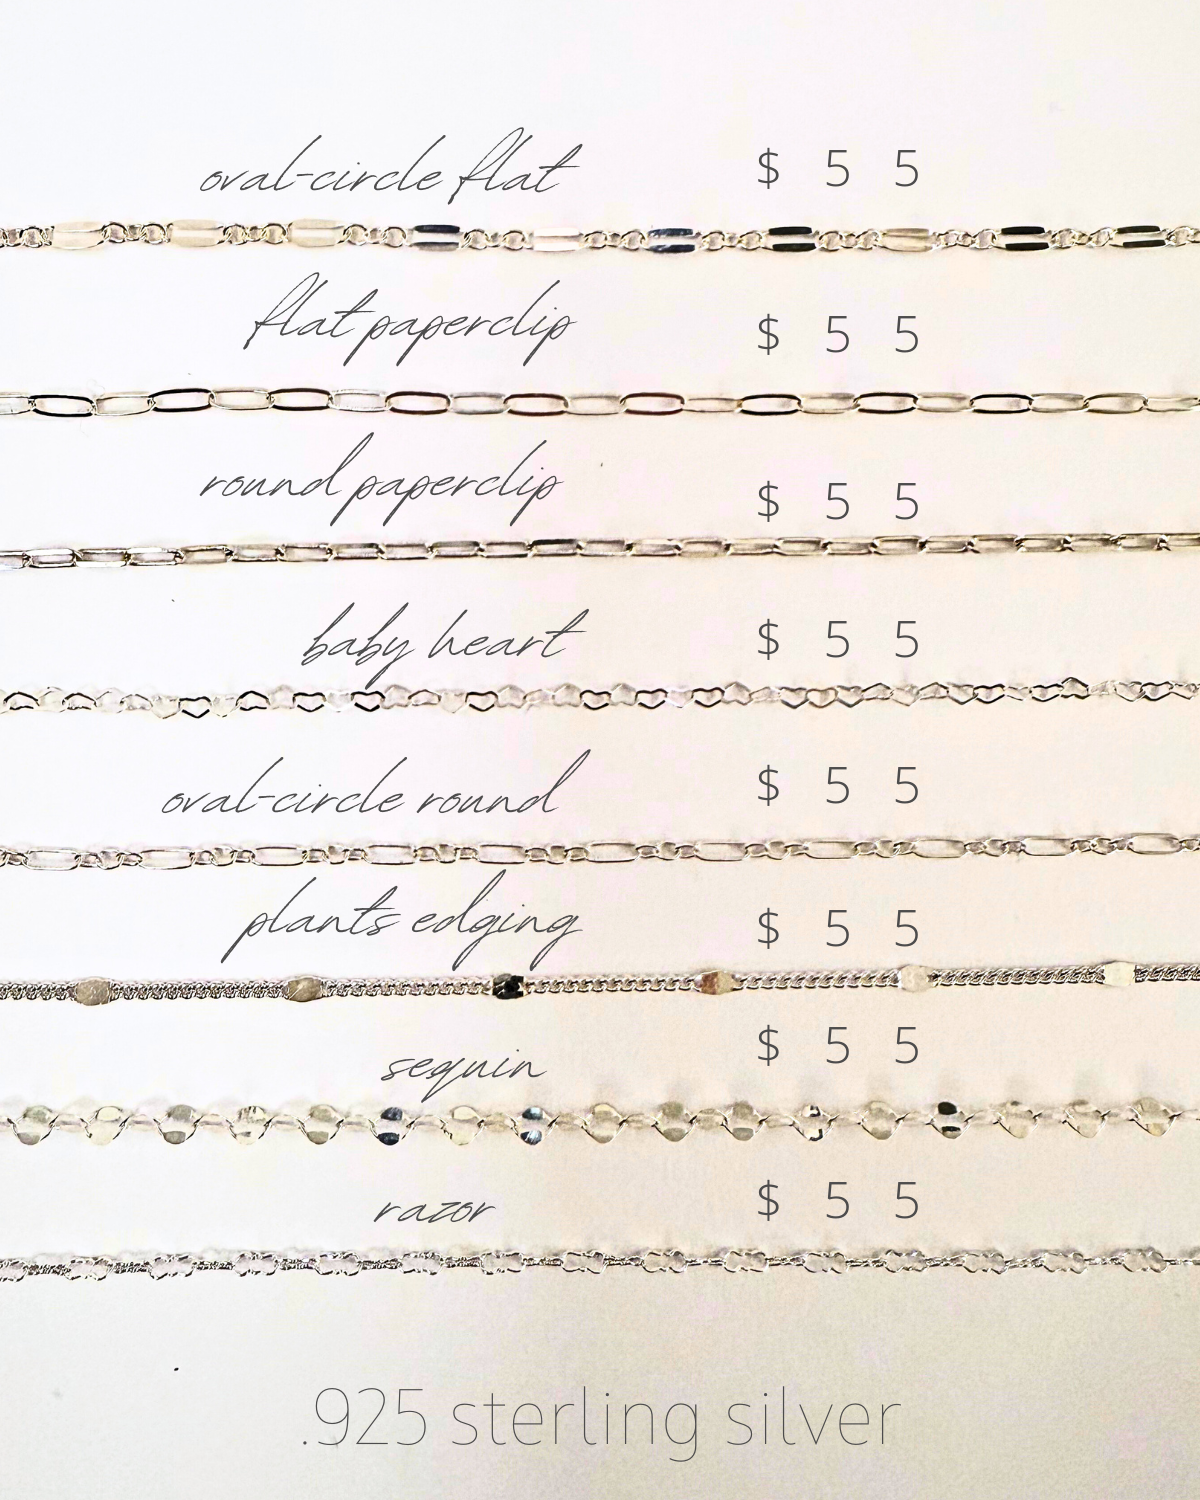 oval-circle flat $ 5 5
flat paperclip $ 5 5
round paperclip $ 5 5
baby heart $ 5 5
oval-circle round $ 5 5
plants edging $ 5 5
sequin $ 5 5
razor $ 5 5
.925 sterling silver